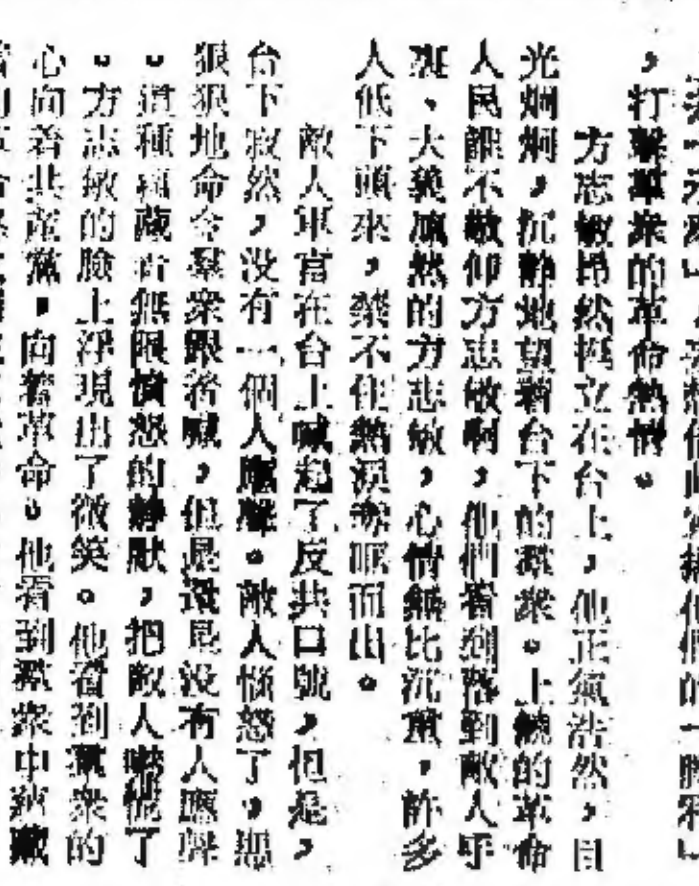 ，打擊羣衆的革命熱情。
方志敏昂然挺立在台上，他正氣浩然，目
光炯炯，沉靜地望着台下的羣衆。上饒的革命
人民誰不敬仰方志敏啊，他們看到落到敵人手
裡、大義凜然的方志敏，心情無比沉重，許多
人低下頭來，禁不住熱淚奪眶而出。
敵人軍官在台上喊起了反共口號，但是，
台下寂然，没有一個人應聲。敵人惱怒了，惡
狠狠地命令羣衆跟着喊，但是還是没有人應聲
。這種蘊藏着無限憤怒的静默，把敵人嚇慌了
。方志敏的臉上浮現出了微笑。他看到羣衆的
心向着共産黨，向着革命。他看到羣衆中藴藏